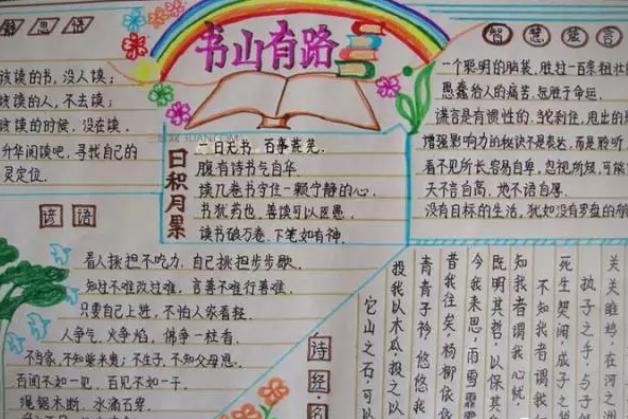 思语
书山有路
智慧慧言
该读的书,没人读;
该读的人,不去读;
该读的时候,没在读.
升华阅读吧,寻找自己的
灵定位.
日积月累
一日无书,百事荒芜.
腹有诗书气自华.
读几卷书守住一颗宁静的心.
书犹药也,善读可以医愚.
读书破万卷,下笔如有神.
一个聪明的脑袋,胜过一百条粗壮的
愚蠢给人的痛苦,甚胜于命运.
谎言是有惯性的,当你刹住,甩出的
增强影响力的秘诀不是表达,而是聆听.
看不见所长容易自卑,忽视所短,可能
天不言自高,地不语自厚.
没有目标的生活,犹如没有罗盘的航
谚语
看人挑担不吃力,自己挑担步步歇.
知过不难改过难,言善不难行善难.
只要自己上进,不怕人家看轻.
人争气,火争焰,佛争一柱香.
不当家,不知柴米贵;不生子,不知父母恩.
百闻不如一见,百见不如一干.
绳锯木断,水滴石穿.
诗经·名
关关雎鸠,在河之洲
执子之手,与子
死生契阔,成子之
不知我者谓我
知我者谓我心忧,
既明其哲,以保其
今我来思,雨雪霏
昔我往矣,杨柳依依
青青子衿,悠悠我
投我以木瓜,投之以
它山之石,可以